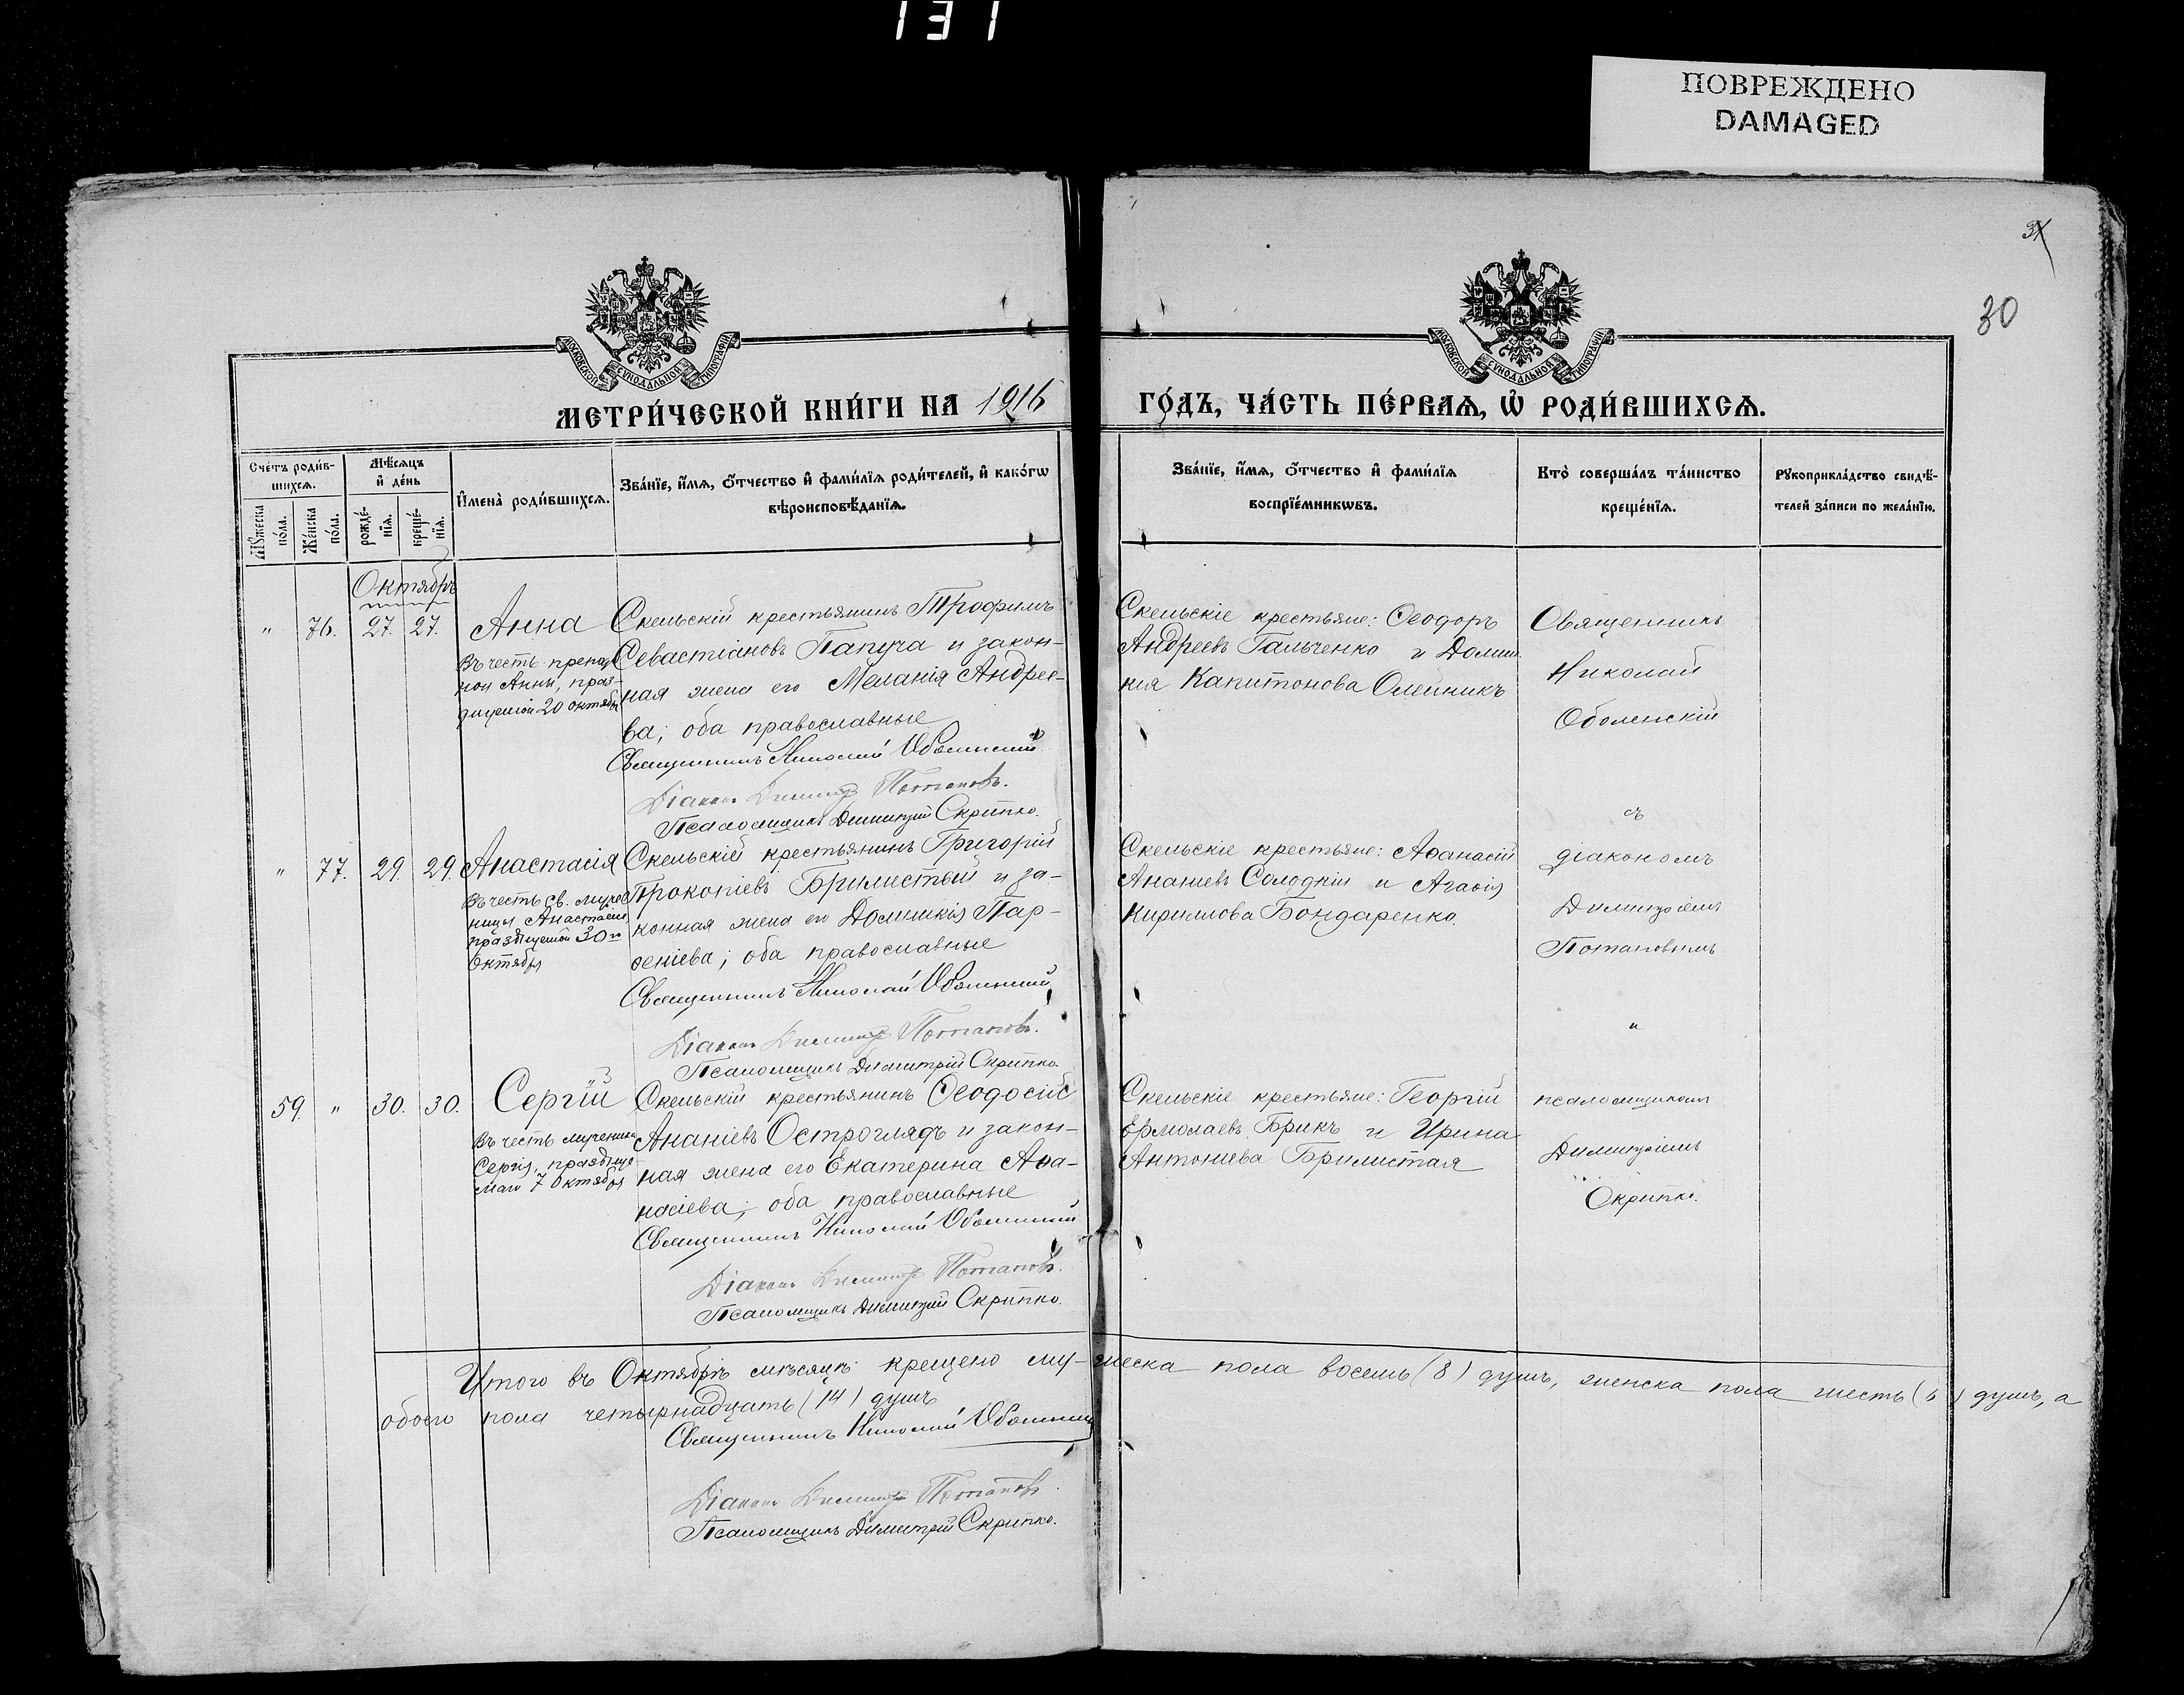 131
ПОВРЕЖДЕНО
DAMAGED
31
30
МОСКОВСКОЙ СѴНОДАЛЬНОЙ ТИПОГРАФІИ
МОСКОВСКОЙ СѴНОДАЛЬНОЙ ТИПОГРАФІИ
МЕТРИ́ЧЕСКОЙ КНИ́ГИ НА 1916
ГО́ДЪ, ЧА́СТЬ ПЕ́РВАѦ, Ѡ҆ РОДИ́ВШИХСѦ.
Сче́тъ роди́в-
шихсѧ.
Мꙋ́жеска
по́ла.
Же́нска
по́ла.
Мѣ́сѧцъ
и҆ де́нь
рожде́-
нїѧ.
креще́-
нїѧ.
И҆мена̀ роди́вшихсѧ.
Зва́нїе, и҆́мѧ, ѻ҆́тчество и҆ фами́лїѧ роди́телей, и҆ како́гѡ
вѣроисповѣ́данїѧ.
Зва́нїе, и҆́мѧ, ѻ҆́тчество и҆ фами́лїѧ
воспрїе́мникѡвъ.
Кто̀ соверша́лъ та́инство
креще́нїѧ.
Рꙋкоприкла́дство свидѣ́-
телей за́писи по жела́нїю.
Октябрь
" 76. 27. 27. Анна
Въ честь препод
ной Анны, праз-
днуемой 20 октября
Скельскій крестьянинъ Трофимъ
Севастіановъ Папуча и закон-
ная жена его Меланія Андрее-
ва; оба православные
Священникъ Николай Оболенскій
Діаконъ Димитрій Потаповъ.
Псаломщикъ Димитрій Скрипко.
Скельскіе крестьяне: Ѳеодоръ
Андреевъ Гальченко и Домни-
кія Капитонова Олейникъ
Священникъ
Николай
Оболенскій
съ
" 77. 29. 29. Анастасія
Въ честь св. муче
ницы Анастасіи
празднуемой 30го
Октября
Скельскій крестьянинъ Григорій
Прокопіевъ Брилистый и за-
конная жена его Домникія Пар-
ѳеніева; оба православные
Священникъ Николай Оболенскій
Діаконъ Димитрій Потаповъ.
Псаломщикъ Димитрій Скрипко.
Скельскіе крестьяне: Аѳанасій
Ананіевъ Солодкій и Агаѳія
Кириллова Бондаренко.
діакономъ
Димитріемъ
Потаповымъ
и
59. " 30. 30. Сергій
Въ честь мученика
Сергія, празднуе
маго 7 Октября
Скельскій крестьянинъ Ѳеодосій
Ананіевъ Остроглядъ и закон-
ная жена его Екатерина Аѳа-
насіева; оба православные
Священникъ Николай Оболенскій
Діаконъ Димитрій Потаповъ.
Псаломщикъ Димитрій Скрипко.
Скельскіе крестьяне: Георгій
Ермолаевъ Брикъ и Ирина
Антоніева Брилистая
псаломщикомъ
Димитріемъ
Скрипко.
Итого въ Октябрѣ мѣсяцѣ крещено му-жеска пола восемь (8) душъ, женска пола шесть (6) душъ, а
обоего пола четырнадцать (14) душъ
Священникъ Николай Оболенскій
Діаконъ Димитрій Потаповъ.
Псаломщикъ Димитрій Скрипко.